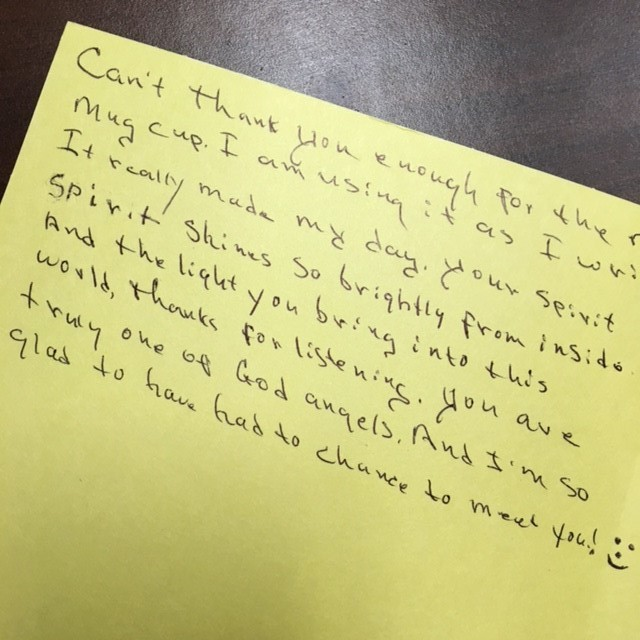 Can't thank you enough for the
Mug cup. I am using it as I wri
It really made my day. your spirit
Spirit Shines so brightly from inside.
And the light you bring into this
world, thanks for listening. you are
truly one of God angels. And I'm so
glad to have had to chance to meet you!